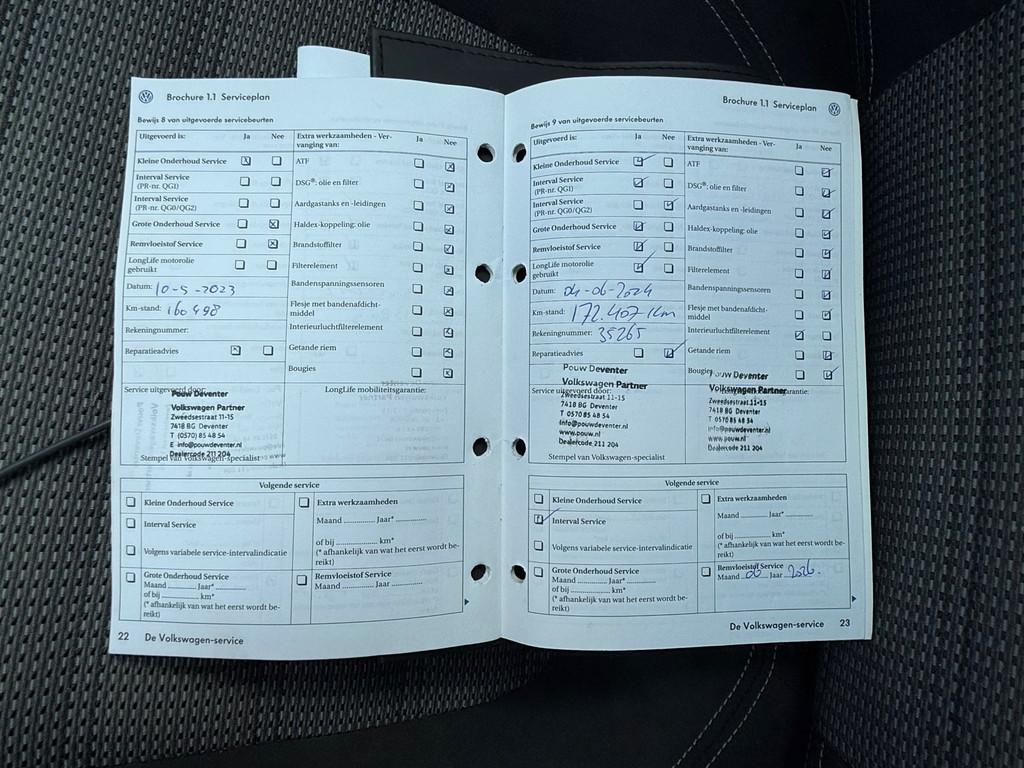 Brochure 1.1 Serviceplan
Bewijs 8 van uitgevoerde servicebeurten
Uitgevoerd is: Ja Nee
Kleine Onderhoud Service
Interval Service
(PR-nr. QG1)
Interval Service
(PR-nr. QG0/QG2)
Grote Onderhoud Service
Remvloeistof Service
LongLife motorolie
gebruikt
Datum: 10-5-2023
Km-stand: 160498
Rekeningnummer:
Reparatieadvies
Extra werkzaamheden - Ver-
vanging van: Ja Nee
ATF
DSG®: olie en filter
Aardgastanks en -leidingen
Haldex-koppeling: olie
Brandstoffilter
Filterelement
Bandenspanningssensoren
Flesje met bandenafdicht-
middel
Interieurluchtfilterelement
Getande riem
Bougies
Service uitgevoerd door:
Pouw Deventer
Volkswagen Partner
Zweedsestraat 11-15
7418 BG Deventer
T (0570) 85 48 54
E info@pouwdeventer.nl
Dealercode 211 204
www
Stempel van Volkswagen-specialist
LongLife mobiliteitsgarantie:
Volgende service
Kleine Onderhoud Service
Interval Service
Volgens variabele service-intervalindicatie
Grote Onderhoud Service
Maand ............ Jaar* ............
of bij ............ km*
(* afhankelijk van wat het eerst wordt be-
reikt)
Extra werkzaamheden
Maand ............ Jaar* ............
of bij ............ km*
(* afhankelijk van wat het eerst wordt be-
reikt)
Remvloeistof Service
Maand ............ Jaar ............
22 De Volkswagen-service
Brochure 1.1 Serviceplan
Bewijs 9 van uitgevoerde servicebeurten
Uitgevoerd is: Ja Nee
Kleine Onderhoud Service
Interval Service
(PR-nr. QG1)
Interval Service
(PR-nr. QG0/QG2)
Grote Onderhoud Service
Remvloeistof Service
LongLife motorolie
gebruikt
Datum: 04-06-2024
Km-stand: 172.407 Km
Rekeningnummer: 35265
Reparatieadvies
Extra werkzaamheden - Ver-
vanging van: Ja Nee
ATF
DSG®: olie en filter
Aardgastanks en -leidingen
Haldex-koppeling: olie
Brandstoffilter
Filterelement
Bandenspanningssensoren
Flesje met bandenafdicht-
middel
Interieurluchtfilterelement
Getande riem
Bougies
Service uitgevoerd door:
Pouw Deventer
Volkswagen Partner
Zweedsestraat 11-15
7418 BG Deventer
T 0570 85 48 54
info@pouwdeventer.nl
www.pouw.nl
Dealercode 211 204
Stempel van Volkswagen-specialist
Pouw Deventer
Volkswagen Partner
Zweedsestraat 11-15
7418 BG Deventer
T 0570 85 48 54
info@pouwdeventer.nl
www.pouw.nl
Dealercode 211 204
Volgende service
Kleine Onderhoud Service
Interval Service
Volgens variabele service-intervalindicatie
Grote Onderhoud Service
Maand ............ Jaar* ............
of bij ............ km*
(* afhankelijk van wat het eerst wordt be-
reikt)
Extra werkzaamheden
Maand ............ Jaar* ............
of bij ............ km*
(* afhankelijk van wat het eerst wordt be-
reikt)
Remvloeistof Service
Maand 06 Jaar 2026.
De Volkswagen-service 23